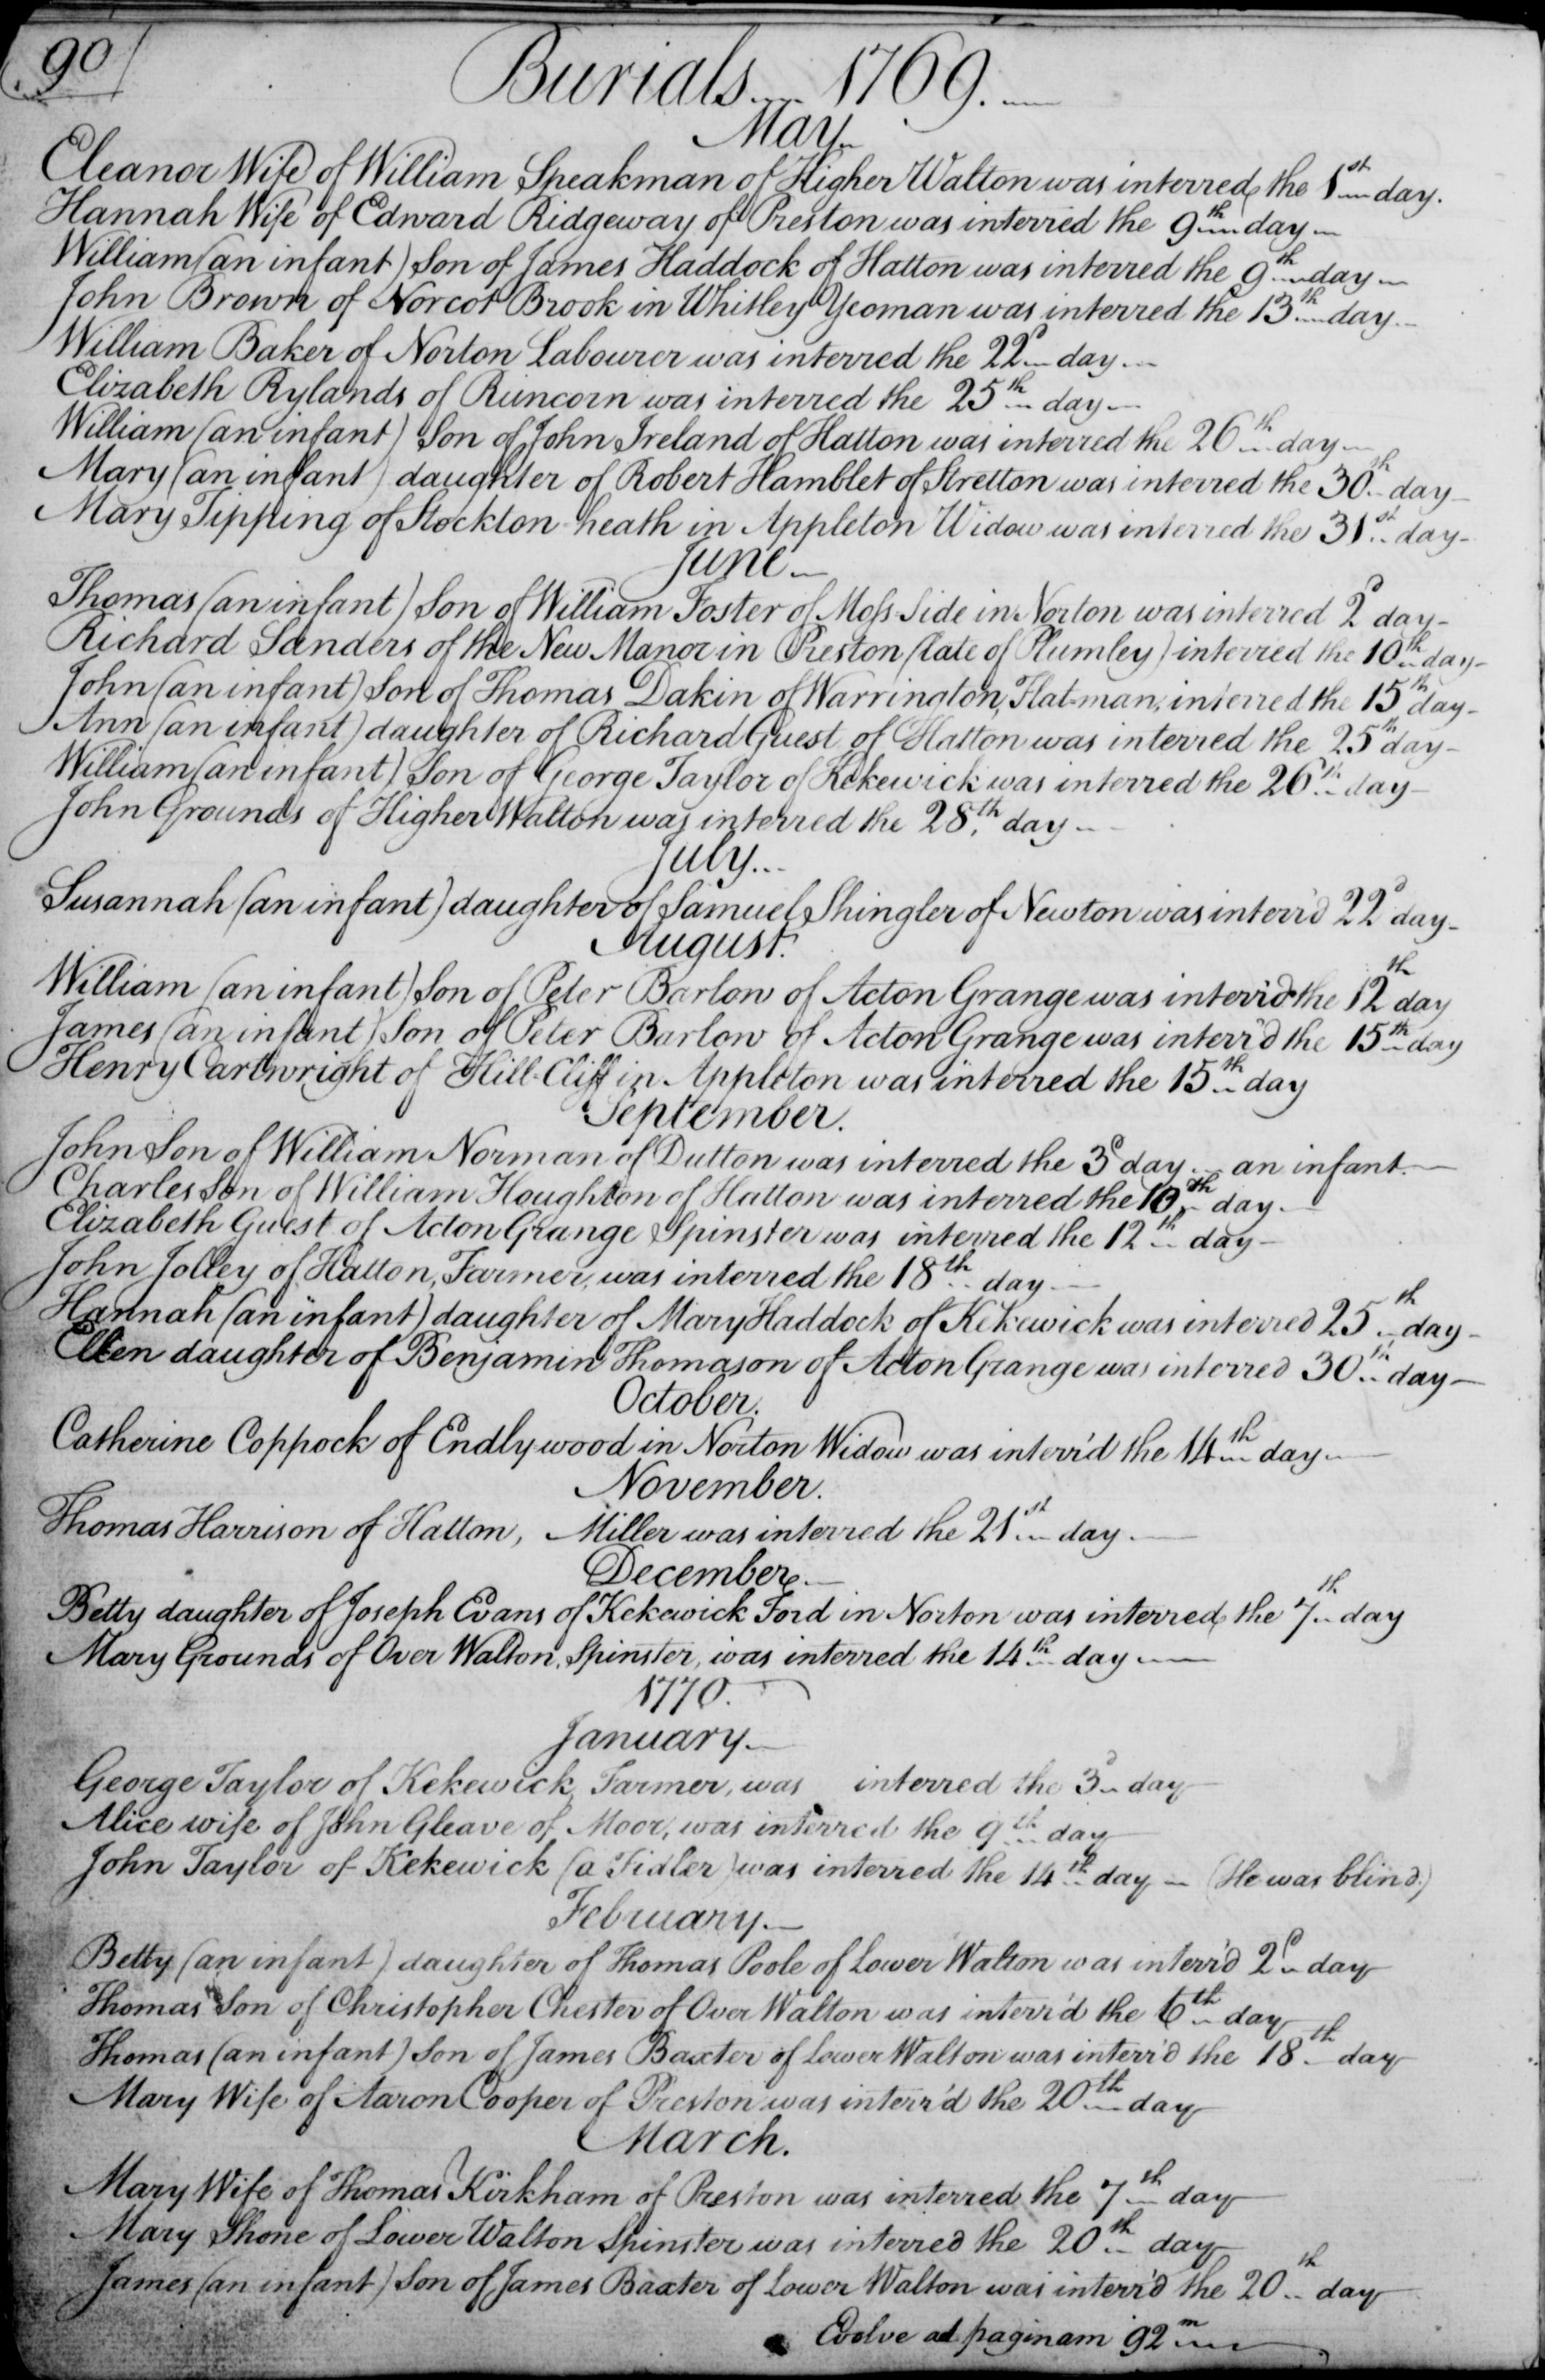 90
Burials 1769.
May
Eleanor Wife of William Speakman of Higher Walton was interred the 1st day.
Hannah Wife of Edward Ridgeway of Preston was interred the 9th day
William (an infant) Son of James Haddock of Hatton was interred the 9th day
John Brown of Norcot Brook in Whitley Yeoman was interred the 13th day
William Baker of Norton Labourer was interred the 22d day
Elizabeth Rylands of Runcorn was interred the 25th day
William (an infant) Son of John Ireland of Hatton was interred the 26th day
Mary (an infant) daughter of Robert Hamblet of Stretton was interred the 30th day
Mary Tipping of Stockton-heath in Appleton Widow was interred the 31st day
June
Thomas (an infant) Son of William Foster of Moſs-Side in Norton was interred 2d day
Richard Sanders of the New Manor in Preston (late of Plumley) interred the 10th day
John (an infant) Son of Thomas Dakin of Warrington, Flat-man, interred the 15th day
Ann (an infant) daughter of Richard Guest of Hatton was interred the 25th day
William (an infant) Son of George Taylor of Kekewick was interred the 26th day
John Grounds of Higher Walton was interred the 28th day
July
Susannah (an infant) daughter of Samuel Shingler of Newton was interr'd 22d day
August.
William (an infant) Son of Peter Barlow of Acton Grange was interr'd the 12th day
James (an infant) Son of Peter Barlow of Acton Grange was interr'd the 15th day
Henry Cartwright of Hill-Cliff in Appleton was interred the 15th day
September.
John Son of William Norman of Dutton was interred the 3d day an infant.
Charles Son of William Houghton of Hatton was interred the 10th day
Elizabeth Guest of Acton Grange Spinster was interred the 12th day
John Jolley of Hatton, Farmer, was interred the 18th day
Hannah (an infant) daughter of Mary Haddock of Kekewick was interred 25th day
Ellen daughter of Benjamin Thomason of Acton Grange was interred 30th day
October.
Catherine Coppock of Endlywood in Norton Widow was interr'd the 14th day
November.
Thomas Harrison of Hatton, Miller was interred the 21st day
December.
Betty daughter of Joseph Evans of Kekewick Ford in Norton was interred the 7th day
Mary Grounds of Over Walton, Spinster, was interred the 14th day
1770.
January.
George Taylor of Kekewick, Farmer, was interred the 3d day
Alice wife of John Gleave of Moor, was interred the 9th day
John Taylor of Kekewick (a Fidler) was interred the 14th day (He was blind.)
February.
Betty (an infant) daughter of Thomas Poole of Lower Walton was interr'd 2d day
Thomas Son of Christopher Chester of Over Walton was interr'd the 6th day
Thomas (an infant) Son of James Baxter of Lower Walton was interr'd the 18th day
Mary Wife of Aaron Cooper of Preston was interr'd the 20th day
March.
Mary Wife of Thomas Kirkham of Preston was interred the 7th day
Mary Shone of Lower Walton Spinster was interred the 20th day
James (an infant) Son of James Baxter of Lower Walton was interr'd the 20th day
Evolve ad paginam 92m